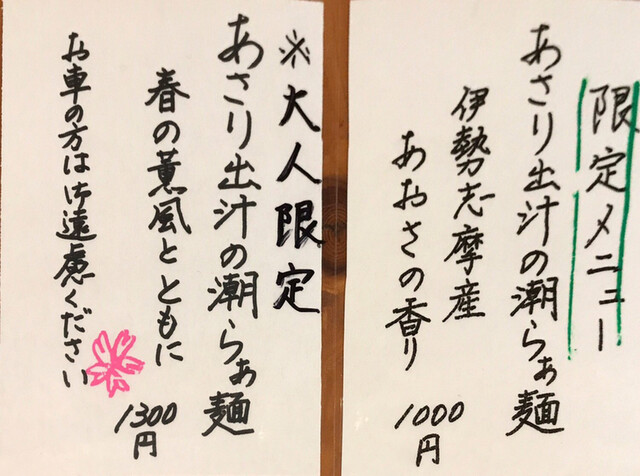 限定メニュー
あさり出汁の潮らぁ麺
伊勢志摩産
あおさの香り
1000円
※大人限定
あさり出汁の潮らぁ麺
春の薫風とともに
1300円
お車の方は御遠慮ください